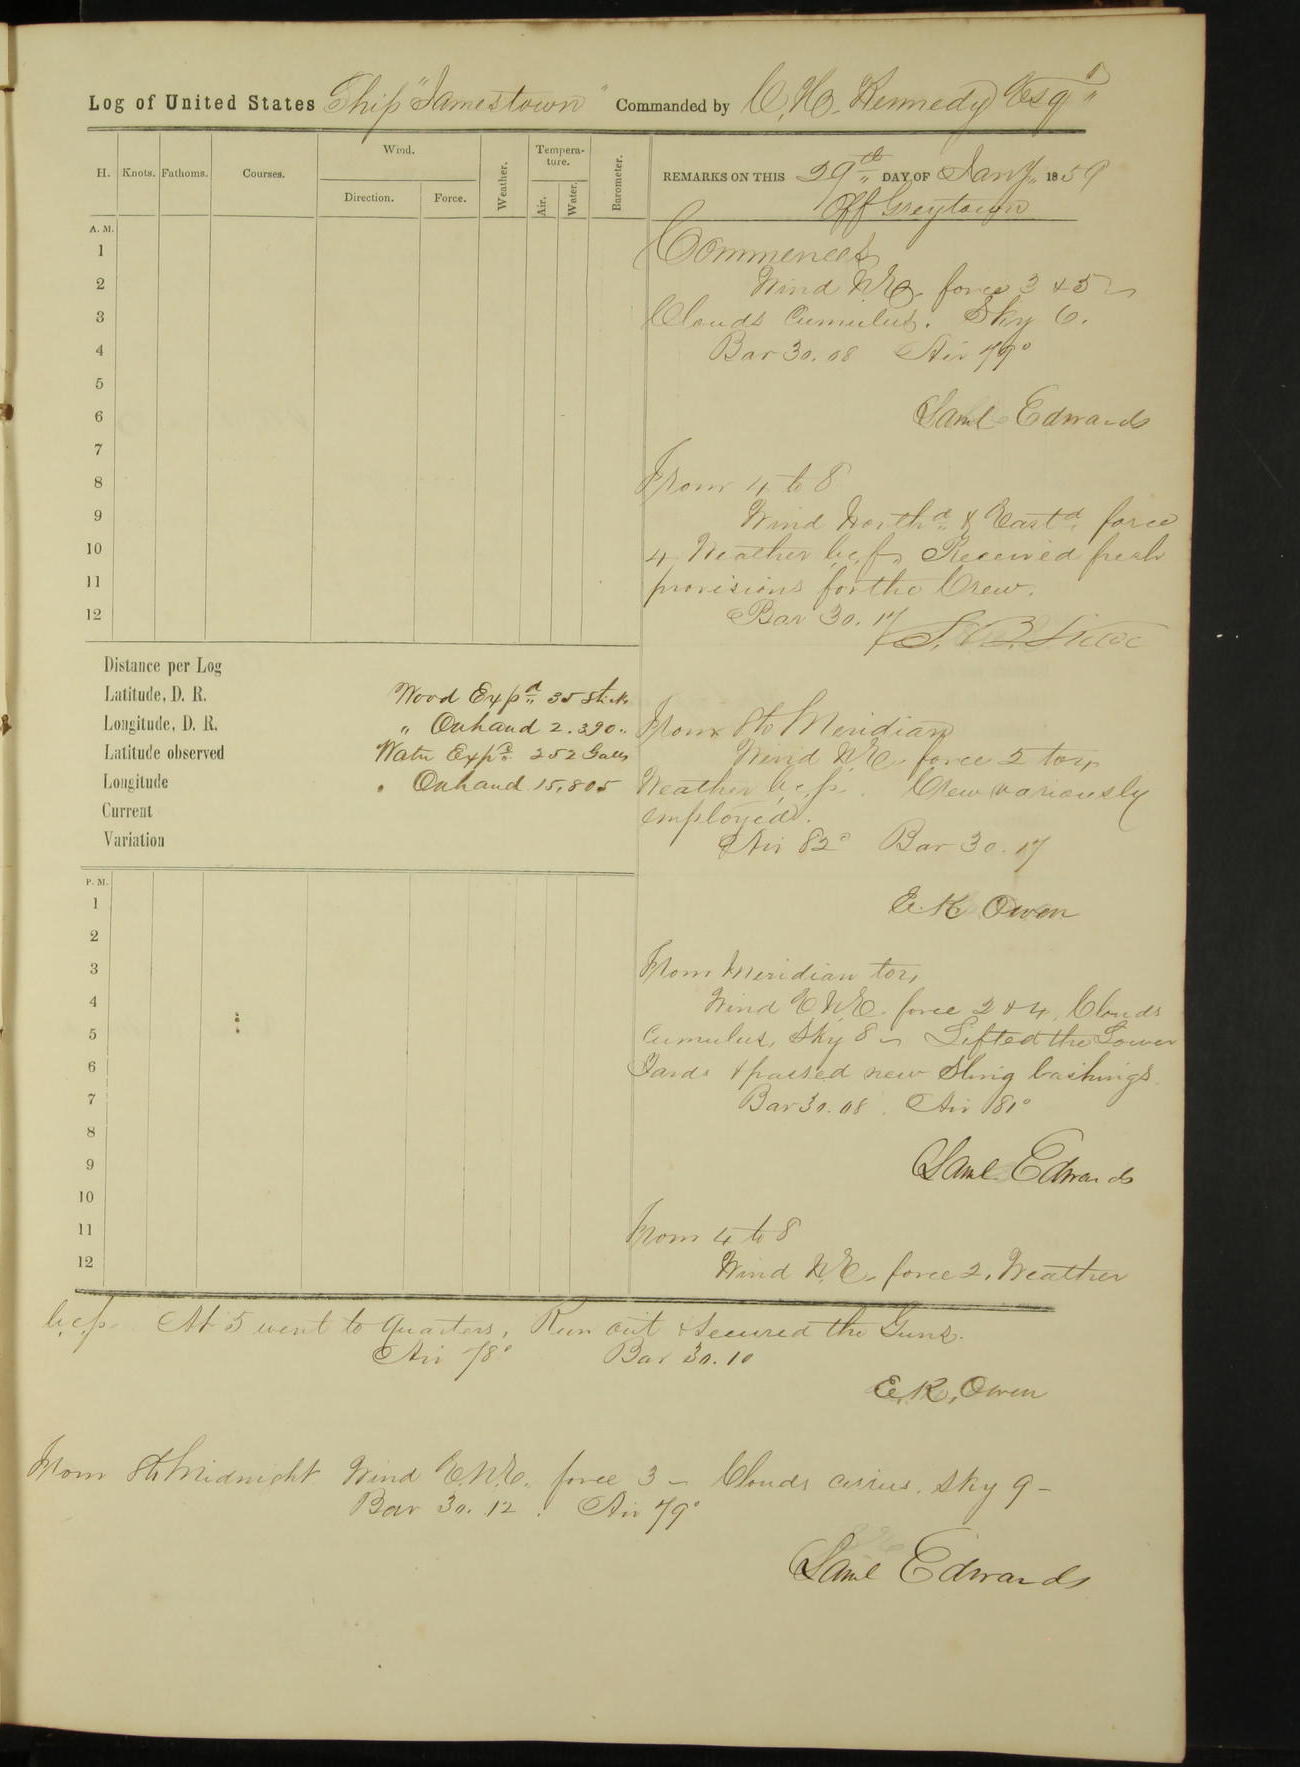 Log of United States Ship "Jamestown" Commanded by C. H. Kennedy Esqr
H. Knots. Fathoms. Courses. Wind. Direction. Force. Weather. Tempera-ture. Air. Water. Barometer.
REMARKS ON THIS 29th DAY OF Jany. 1859
Off Greytown
A. M.
1
2
3
4
5
6
7
8
9
10
11
12
Commences
Wind N.E. force 3 & 5
Clouds Cumulus. Sky 6.
Bar 30.08 Air 79°
Saml Edwards
From 4 to 8
Wind Northd & Eastd force
4, Weather b.c.p. Received fresh
provisions for the Crew.
Bar 30.17
Distance per Log
Latitude, D. R.
Longitude, D. R.
Latitude observed
Longitude
Current
Variation
Wood Expd 35 Sticks
" On hand 2.390 "
Water Expd 252 Galls
" On hand 15,805
From 8 to Meridian
Wind N.E. force 2 to 4
Weather b.c.p. Crew variously
employed.
Air 82° Bar 30.17
E. K Owen
P. M.
1
2
3
4
5
6
7
8
9
10
11
12
From Meridian to 4
Wind E.N.E. force 2 & 4, Clouds
Cumulus, Sky 8 Lifted the Lower
Yards & passed new Sling Lashings.
Bar 30.08. Air 81°
Saml Edwards
From 4 to 8
Wind N.E. force 2. Weather
b.c.p. At 5 went to Quarters, Run out & Secured the Guns.
Air 78° Bar 30.10
E. K. Owen
From 8 to Midnight Wind E.N.E. force 3 - Clouds cirrus. Sky 9 -
Bar 30.12. Air 79°
Saml Edwards